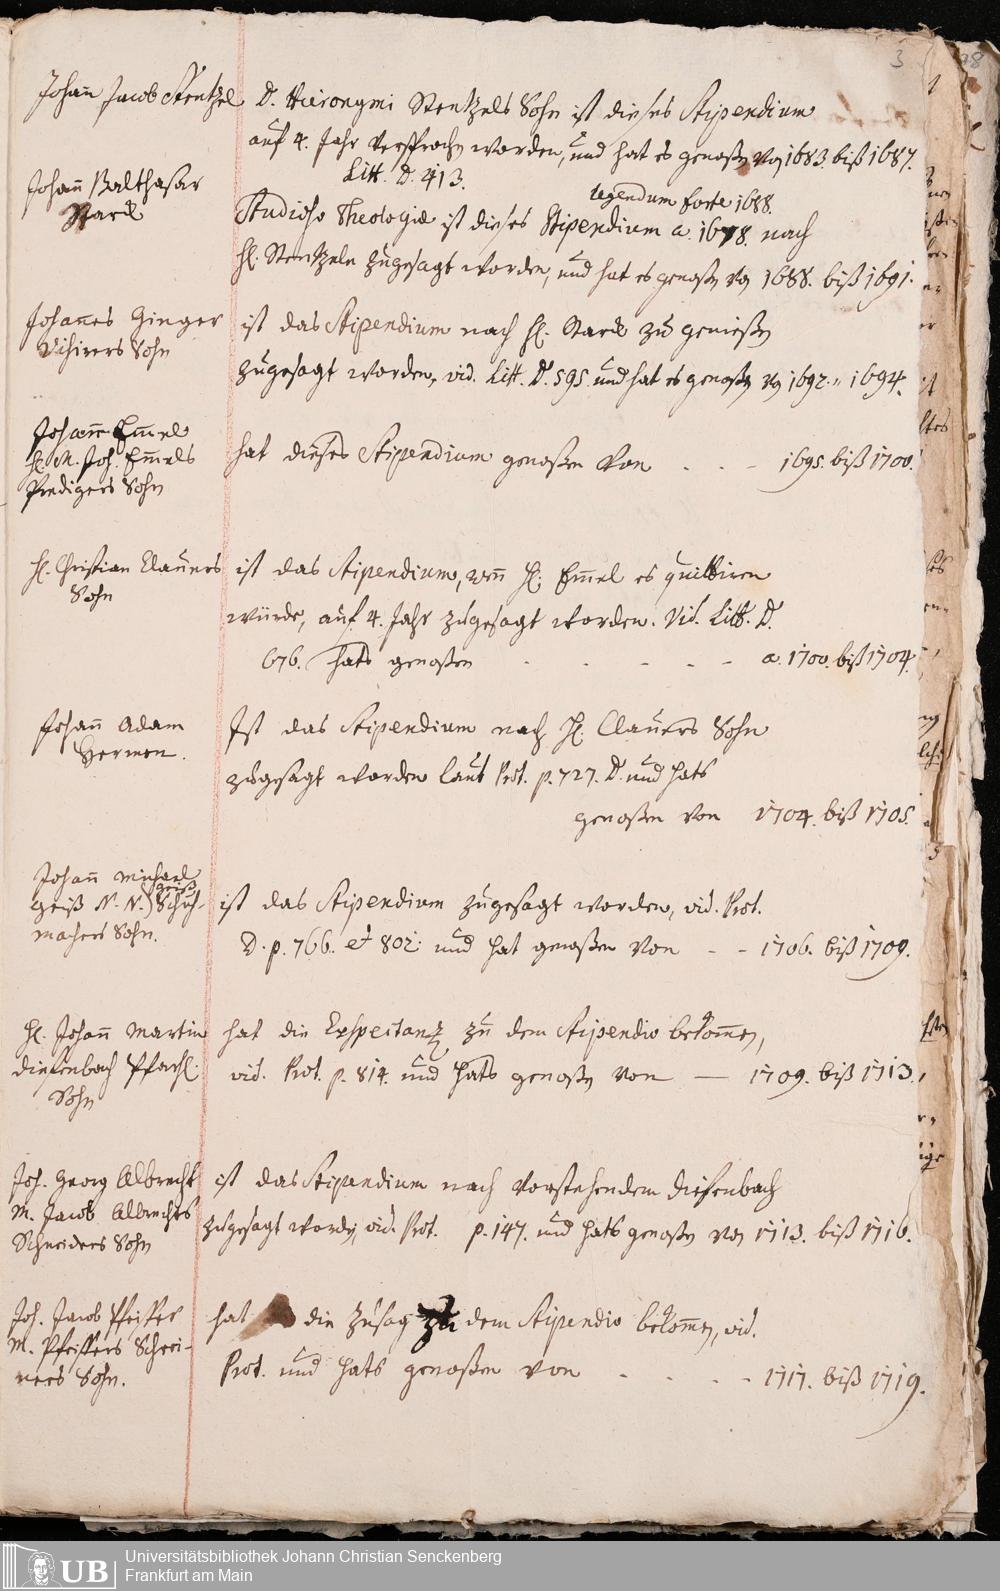 3
Johann Jacob Stentzel
D. Hieronymi Stentzels Sohn ist dieses Stipendium
auf 4. Jahr versprochen worden, und hat es genoßen von 1683. biß 1687.
Litt. D. 413.
Johann Balthasar
Starck
legendum forte 1688.
Studioso Theologiæ ist dieses Stipendium a. 1678. nach
H. Stentzeln zugesagt worden, und hat es genoßen von 1688. biß 1691.
Johannes Ginger
Visirers Sohn
ist das Stipendium nach H. Starck zu genießen
zugesagt worden, vid. Litt. D. 595. und hat es genoßen von 1692. 1694.
Johann Emmel
H. M. Joh. Emmels
Predigers Sohn
hat dieses Stipendium genoßen von - - - 1695. biß 1700.
H. Christian Clauers
Sohn
ist das Stipendium, wenn H. Emmel es quittiren
würde, auf 4. Jahr zugesagt worden. Vid. Litt. D.
676. hats genoßen - - - - - a. 1700. biß 1704.
Johann Adam
Hermen.
Ist das Stipendium nach H. Clauers Sohn
zugesagt worden laut Prot. p. 727. D. und hats
genoßen von 1704. biß 1705.
Johann Michael
Geiß N. N. Geiß Schuh-
machers Sohn.
ist das Stipendium zugesagt worden, vid. Prot.
D. p. 766. et 802. und hat genoßen von - - 1706. biß 1709.
H. Johann Martin
Diefenbach Pfarrh.
Sohn
hat die Exspectantz zu dem Stipendio bekommen,
vid. Prot. p. 814. und hats genoßen von — 1709. biß 1713.
Joh. Georg Albrecht
M. Jacob Albrechts
Schneiders Sohn
ist das Stipendium nach vorstehendem Diefenbach
zugesagt worden vid. Prot. p. 147. und hats genoßen von 1713. biß 1716.
Joh. Jacob Pfeiffer
M. Pfeiffers Schrei-
ners Sohn.
hat die Zusag zu dem Stipendio bekommen, vid.
Prot. und hats genoßen von - - - - 1717. biß 1719.
UB
Universitätsbibliothek Johann Christian Senckenberg
Frankfurt am Main